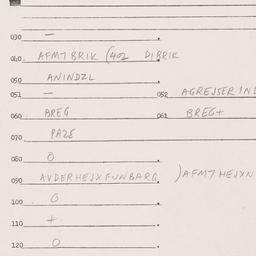 030 —
040 AFM7 BRIK (402 DIBRIK
050 ANINDZL
051 — 052 AGREJSER IND
060 BREG 061 BREG+
070 PAZE
080 0
090 AVDERHEJX FUNBARG )AFM7 HEJXN
100 0
110 +
120 0